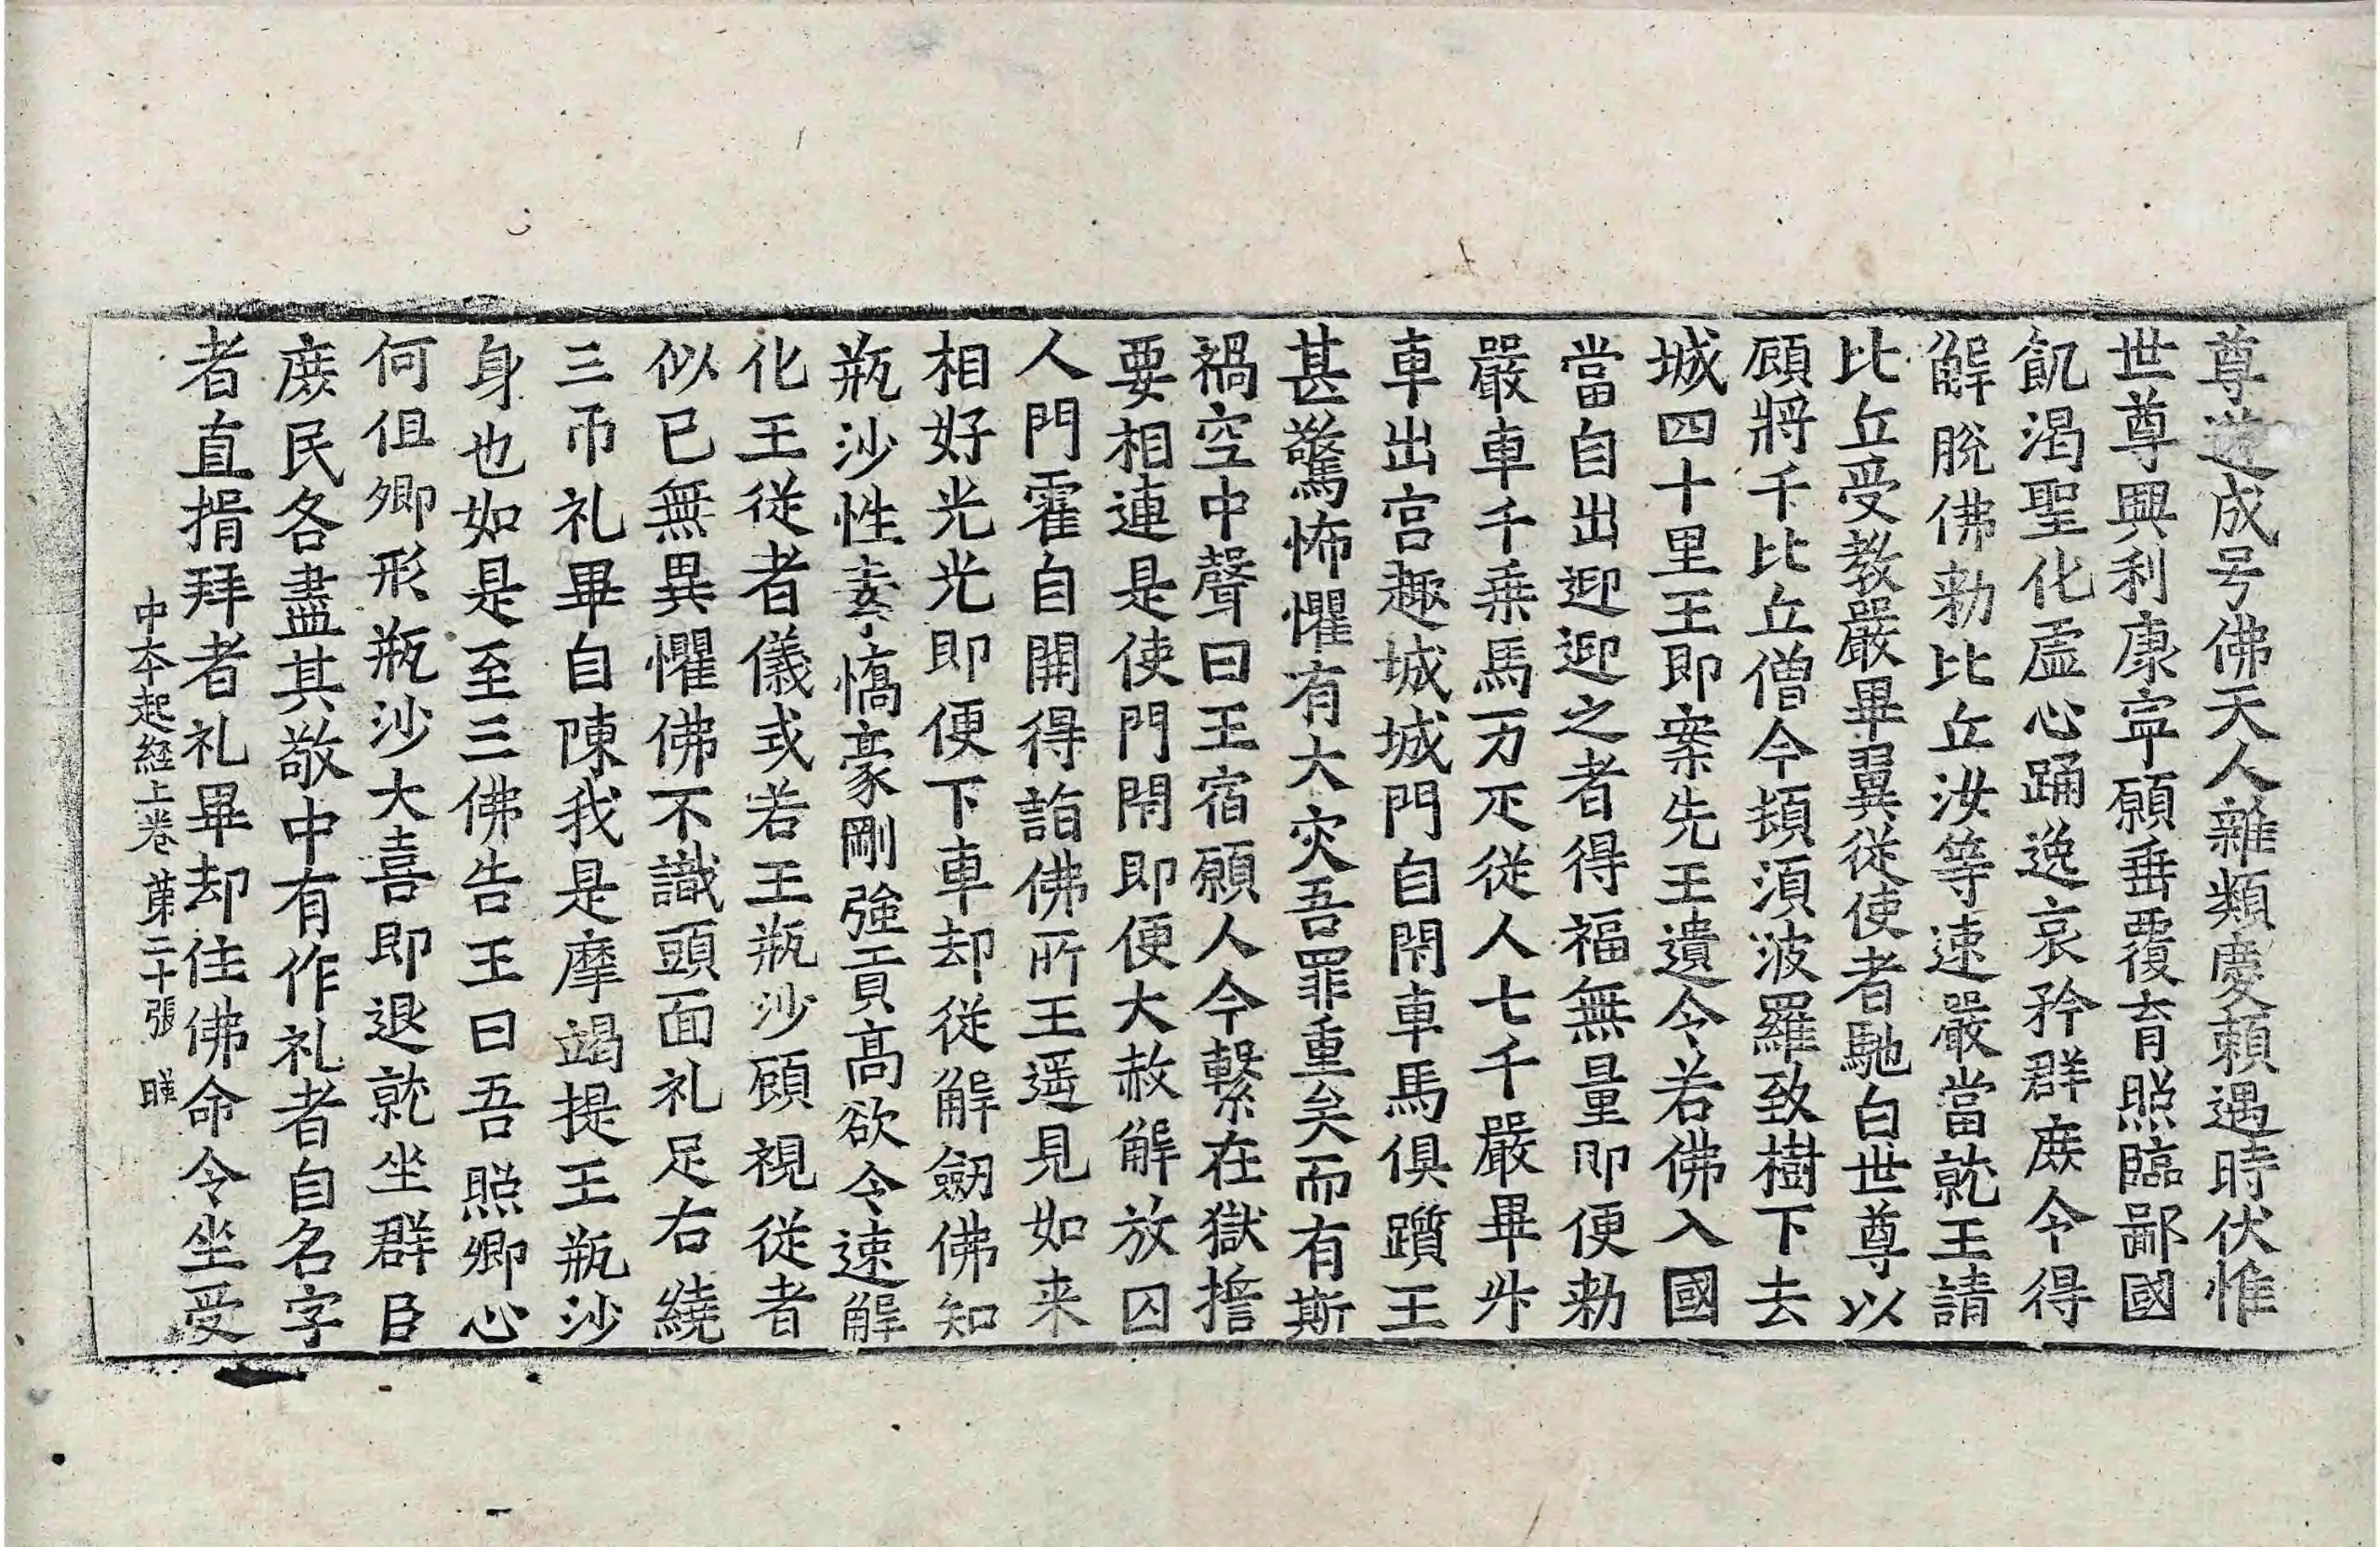 尊道成号佛天人雜類慶賴遇時伏惟
世尊興利康寧願垂覆育照臨鄙國
飢渴聖化虛心踊逸哀矜群庶令得
解脫佛勑比丘汝等速嚴當就王請
比丘受教嚴畢翼從使者馳白世尊以
顧將千比丘僧今頓湏波羅致樹下去
城四十里王即案先王遺令若佛入國
當自出迎迎之者得福無量即便勑
嚴車千乗馬万疋從人七千嚴畢升
車出宫趣城城門自閇車馬俱躓王
甚驚怖懼有大灾吾罪重矣而有斯
禍空中聲曰王宿願人今繫在獄擔
要相連是使門閇即便大赦解放囚
人門霍自開得詣佛所王遥見如来
相好光光即便下車却從解劒佛知
瓶沙性素憍豪剛強貢高欲令速解
化王從者儀式若王瓶沙顧視從者
似已無異懼佛不識頭面礼足右繞
三帀礼畢自陳我是摩竭提王瓶沙
身也如是至三佛告王曰吾照卿心
何但卿形瓶沙大喜即退就坐群臣
庶民各盡其敬中有作礼者自名字
者直揖拜者礼畢却住佛命令坐受
中本起經上卷 苐二十張